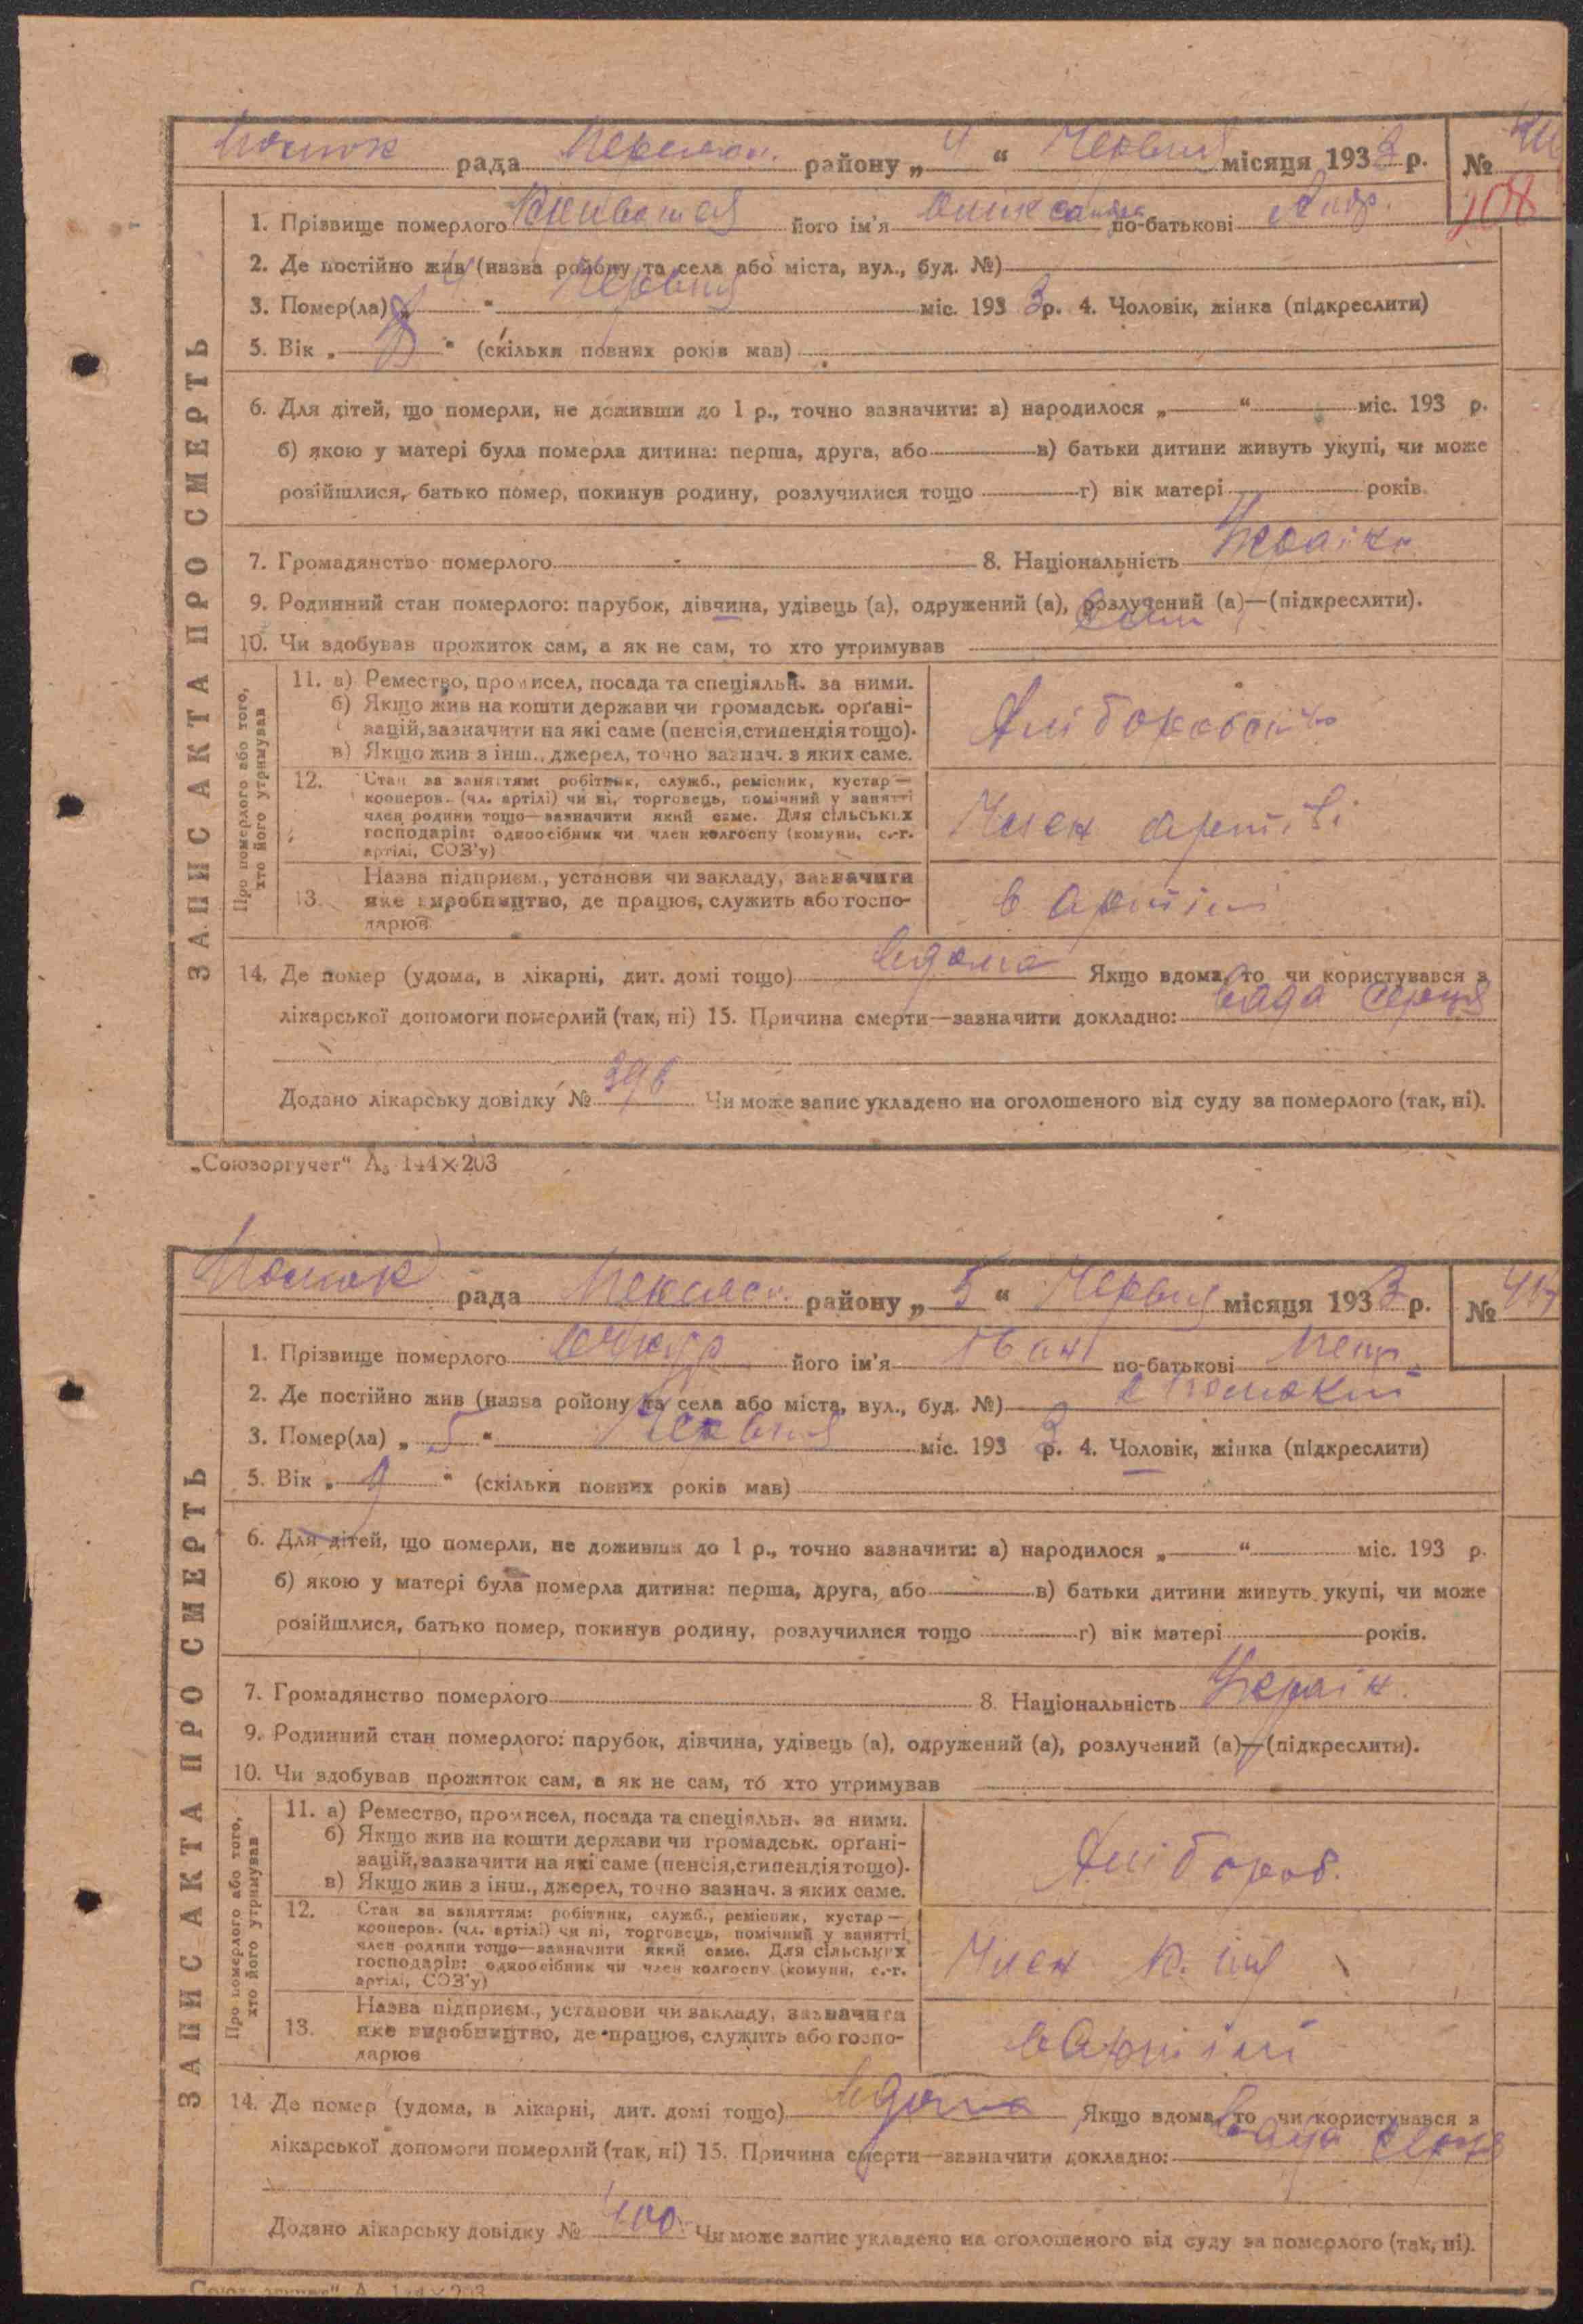 рада района „ 4 “ Червня місяця 1933 р. №
108
ЗАПИС АКТА ПРО СМЕРТЬ
1. Прізвище померлого його ім'я по-батькові Андр.
2. Де постійно жив (назва ройону та села або міста, вул., буд. №)
3. Помер(ла) „ 4 “ Червня міс. 193 3 р. 4. Чоловік, жінка (підкреслити)
5. Вік „ “ (скільки повних років мав)
6. Для дітей, що померли, не доживши до 1 р., точно зазначити: а) народилося „ “ міс. 193 р.
б) якою у матері була померла дитина: перша, друга, або в) батьки дитини живуть укупі, чи може
розійшлися, батько помер, покинув родину, розлучилися тощо г) вік матері років.
7. Громадянство померлого 8. Національність Україн
9. Родинний стан померлого: парубок, дівчина, удівець (а), одружений (а), розлучений (а)—(підкреслити).
10. Чи здобував прожиток сам, а як не сам, то хто утримував сам
Про померлого або того, хто його утримував
11. а) Ремество, промисел, посада та спеціяльн. за ними.
б) Якщо жив на кошти держави чи громадськ. орґані-
зацій, зазначити на які саме (пенсія, стипендія тощо).
в) Якщо жив з інш., джерел, точно зазнач. з яких саме.
12. Стан за заняттям: робітник, служб., ремісник, кустар —
кооперов. (чл. артілі) чи ні, торговець, помічний у занятті
член родини тощо—зазначити який саме. Для сільських
господарів: одноосібник чи член колгоспу (комуни, с.-г.
артілі, СОЗ'у)
Член артілі
13. Назва підприєм., установи чи закладу, зазначити
яке виробництво, де працює, служить або госпо-
дарює
в артілі
14. Де помер (удома, в лікарні, дит. домі тощо) вдома Якщо вдома, то чи користувався з
лікарської допомоги померлий (так, ні) 15. Причина смерти—зазначити докладно: вада серця
Додано лікарську довідку № 396 Чи може запис укладено на оголошеного від суду за померлого (так, ні).
„Союзоргучет“ А₅ 144×203
рада района „ 5 “ Червня місяця 1933 р. №
ЗАПИС АКТА ПРО СМЕРТЬ
1. Прізвище померлого його ім'я Іван по-батькові Петр.
2. Де постійно жив (назва ройону та села або міста, вул., буд. №)
3. Помер(ла) „ 5 “ Червня міс. 193 3 р. 4. Чоловік, жінка (підкреслити)
5. Вік „ “ (скільки повних років мав)
6. Для дітей, що померли, не доживши до 1 р., точно зазначити: а) народилося „ “ міс. 193 р.
б) якою у матері була померла дитина: перша, друга, або в) батьки дитини живуть укупі, чи може
розійшлися, батько помер, покинув родину, розлучилися тощо г) вік матері років.
7. Громадянство померлого 8. Національність Україн.
9. Родинний стан померлого: парубок, дівчина, удівець (а), одружений (а), розлучений (а)—(підкреслити).
10. Чи здобував прожиток сам, а як не сам, то хто утримував
Про померлого або того, хто його утримував
11. а) Ремество, промисел, посада та спеціяльн. за ними.
б) Якщо жив на кошти держави чи громадськ. орґані-
зацій, зазначити на які саме (пенсія, стипендія тощо).
в) Якщо жив з інш., джерел, точно зазнач. з яких саме.
Хлібороб.
12. Стан за заняттям: робітник, служб., ремісник, кустар —
кооперов. (чл. артілі) чи ні, торговець, помічний у занятті
член родини тощо—зазначити який саме. Для сільських
господарів: одноосібник чи член колгоспу (комуни, с.-г.
артілі, СОЗ'у)
Член
13. Назва підприєм., установи чи закладу, зазначити
яке виробництво, де працює, служить або госпо-
дарює
в Артілі
14. Де помер (удома, в лікарні, дит. домі тощо) вдома Якщо вдома, то чи користувався з
лікарської допомоги померлий (так, ні) 15. Причина смерти—зазначити докладно: вада серця
Додано лікарську довідку № 400 Чи може запис укладено на оголошеного від суду за померлого (так, ні).